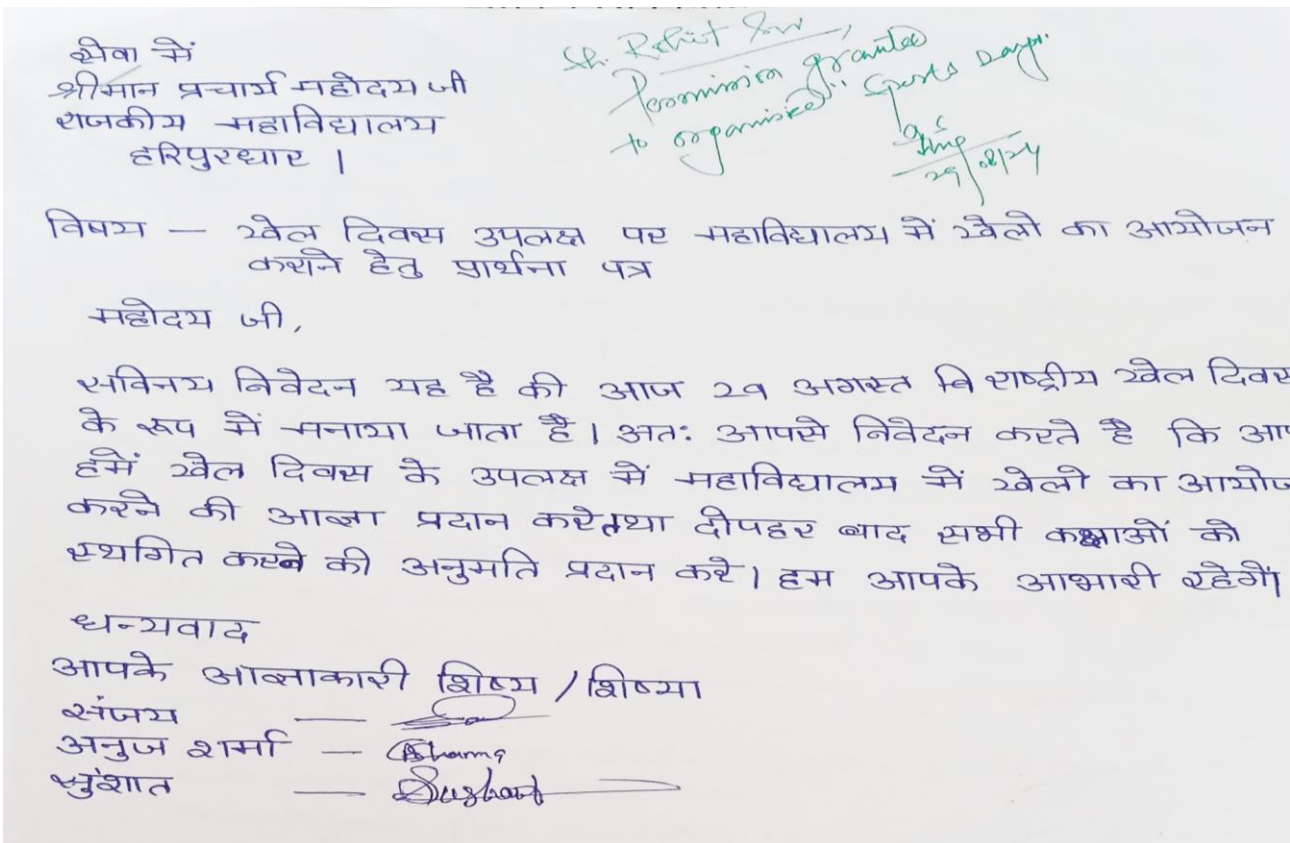 सेवा में
श्रीमान प्रचार्य महोदय जी
राजकीय महाविद्यालय
हरिपुरधार ।
Sh. Rohit Sir
Permission granted
to organised Sports Day
29/08/24
विषय — खेल दिवस उपलक्ष पर महाविद्यालय में खेलो का आयोजन
कराने हेतु प्रार्थना पत्र
महोदय जी,
सविनय निवेदन यह है की आज 29 अगस्त वि राष्ट्रीय खेल दिवस
के रूप में मनाया जाता है । अतः आपसे निवेदन करते है कि आप
हमें खेल दिवस के उपलक्ष में महाविद्यालय में खेलो का आयोज
करने की आज्ञा प्रदान करे तथा दोपहर बाद सभी कक्षाओं को
स्थगित करने की अनुमति प्रदान करे । हम आपके आभारी रहेगें।
धन्यवाद
आपके आज्ञाकारी शिष्य / शिष्या
संजय —
अनुज शर्मा — Asharma
सुशांत — Sushant